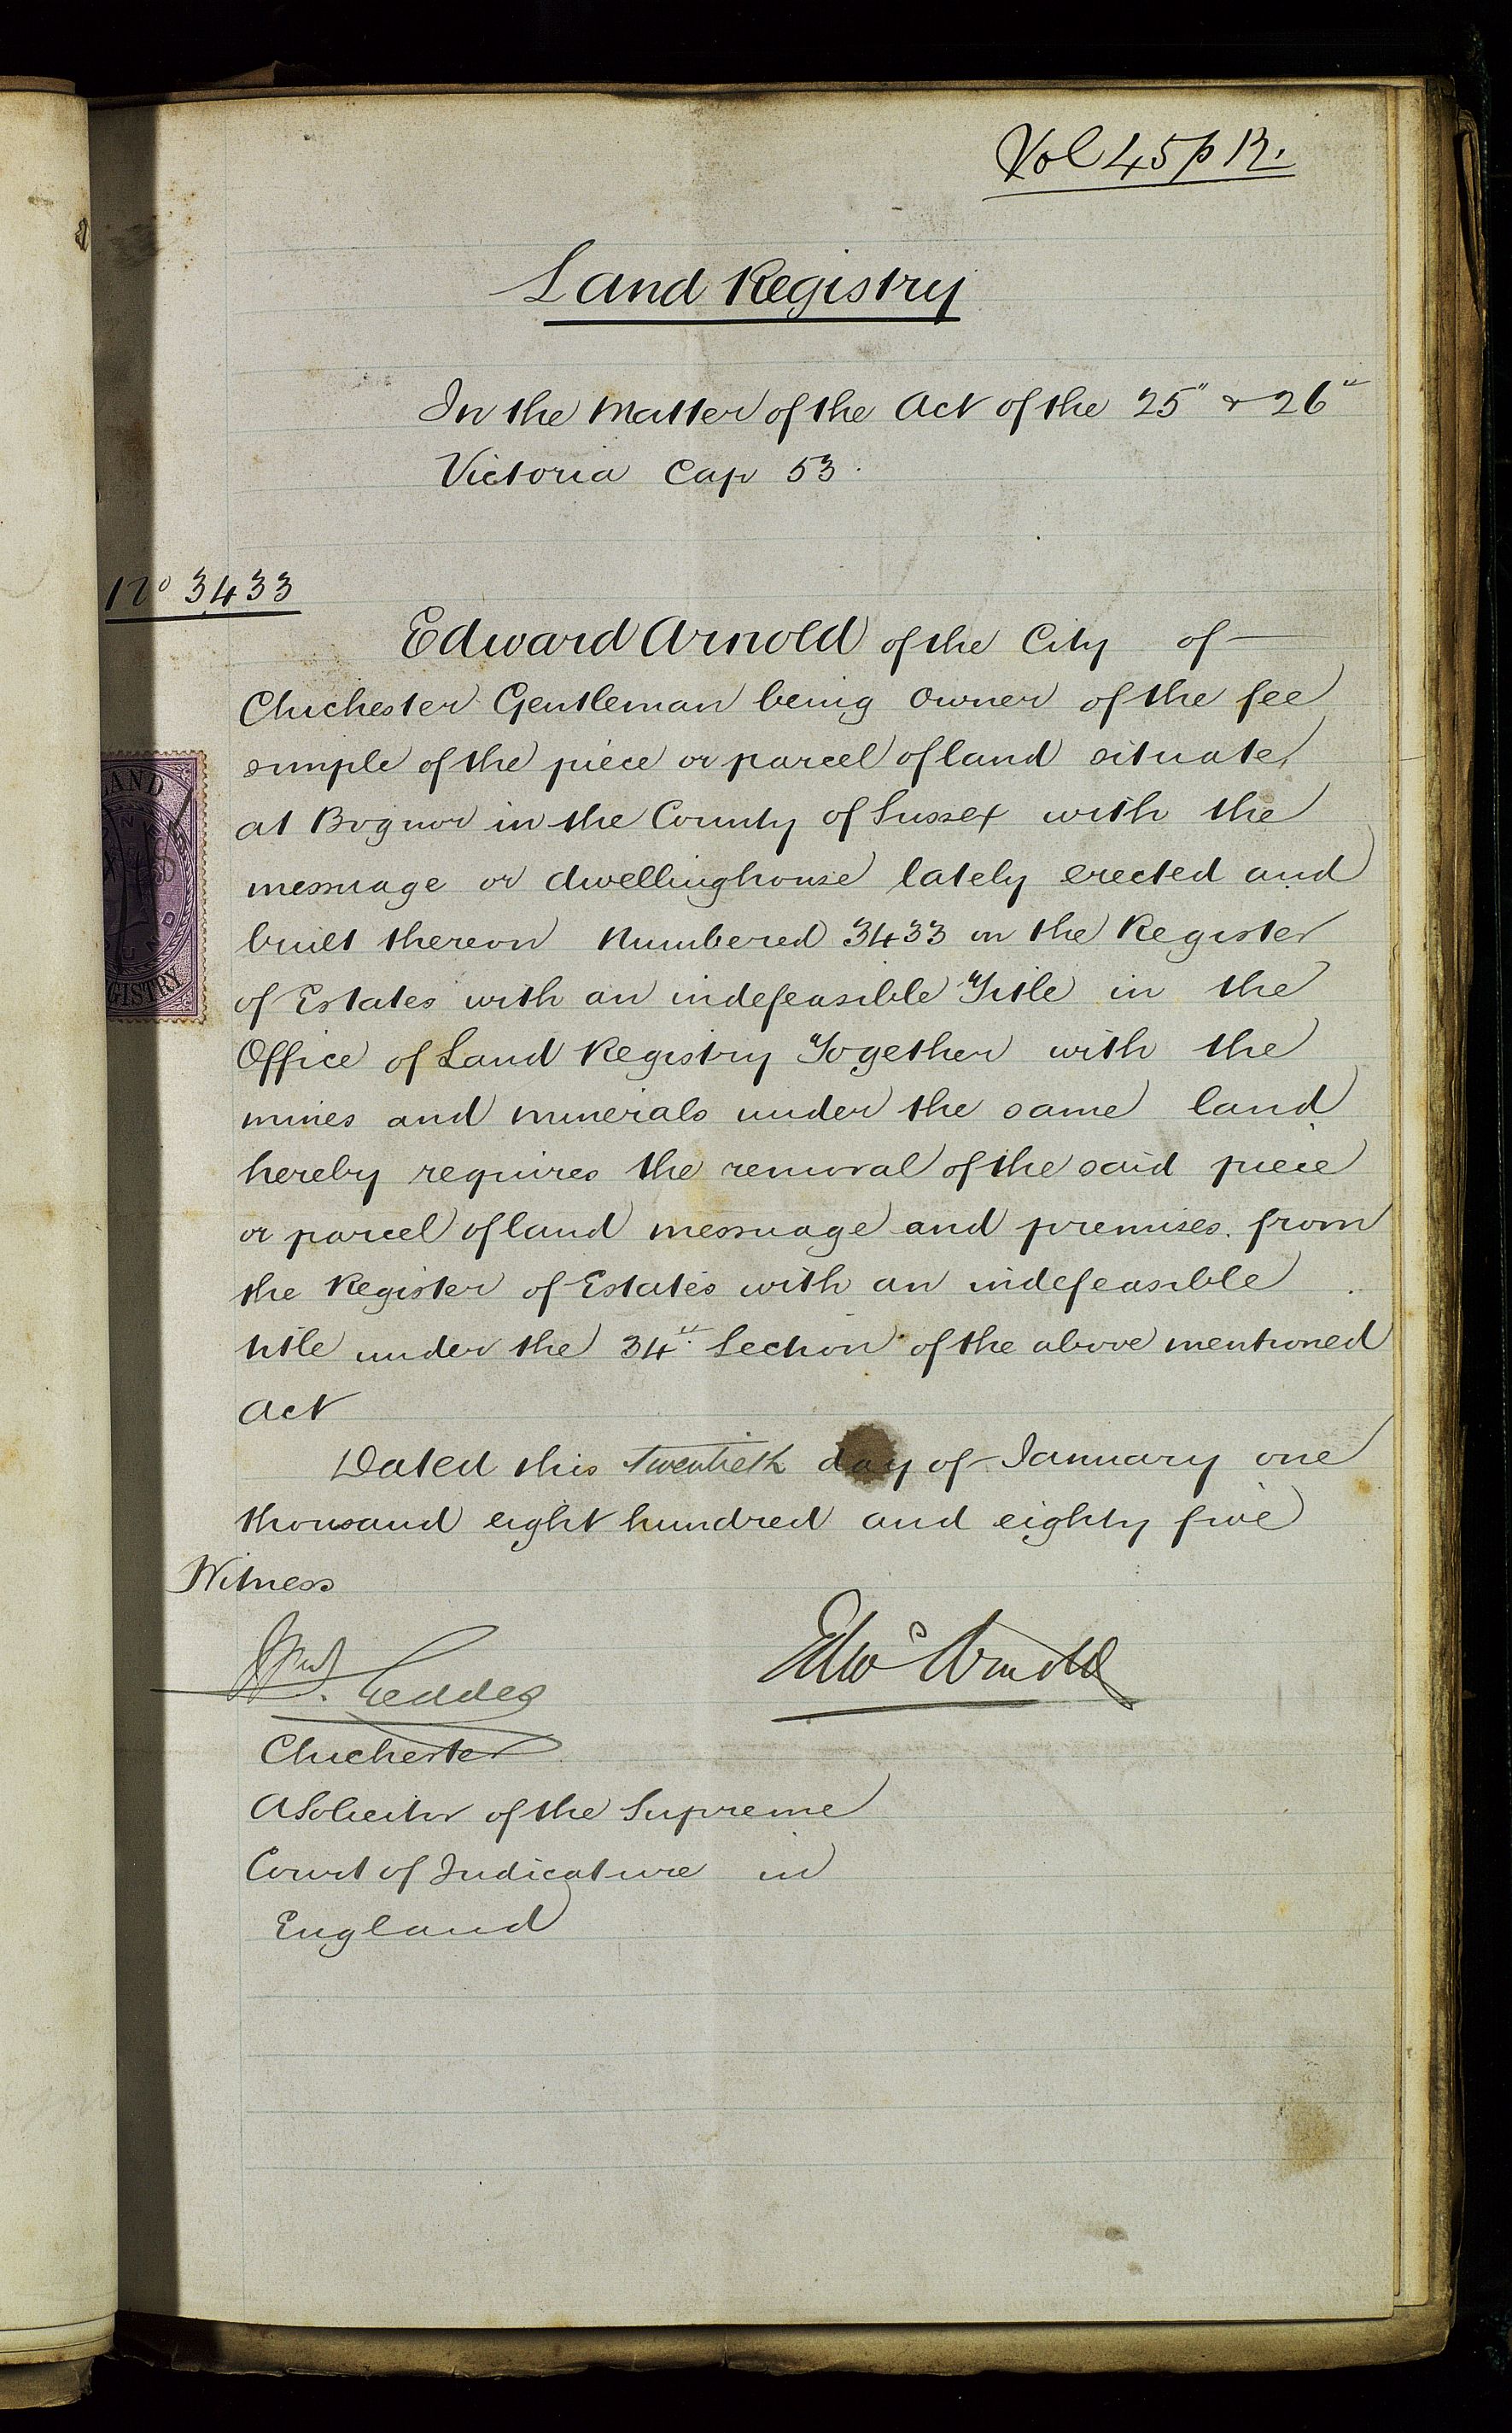 Vol 45 p 12.
Land Registry
In the Matter of the Act of the 25" & 26"
Victoria Cap 53.
No 3433
Edward Arnold of the City of
Chichester Gentleman being owner of the fee
simple of the piece or parcel of land situate
at Bognor in the County of Sussex with the
messuage or dwellinghouse lately erected and
built thereon Numbered 3433 on the Register
of Estates with an indefeasible Title in the
Office of Land Registry Together with the
mines and minerals under the same land
hereby requires the removal of the said piece
or parcel of land messuage and premises. from
the Register of Estates with an indefeasible
title under the 34" Section of the above mentioned
Act
Dated this twentieth day of January one
thousand eight hundred and eighty five
Witness
Edwd Arnold
Geddes
Chichester
A Solicitor of the Supreme
Court of Judicature in
England
LAND
GISTRY